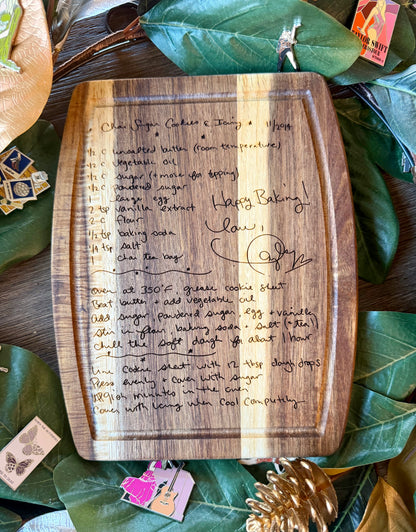 Chai Sugar Cookies & Icing 11/2014
1/2 c unsalted butter (room temperature)
1/2 c vegetable oil
1/2 c sugar (+ more for topping)
1/2 c powdered sugar
1 large egg
2 tsp vanilla extract
2 c flour
1/2 tsp baking soda
1/4 tsp salt
1 chai tea bag
Happy Baking!
Love,
Taylor
Oven at 350°F, grease cookie sheet
Beat butter + add vegetable oil
Add sugar, powdered sugar, egg + vanilla
Stir in flour, baking soda + salt (+ tea!)
Chill the soft dough for about 1 hour
Line cookie sheet with 12 tbsp dough drops
Press evenly + cover with sugar
minutes in the oven
Cover with icing when cool completely
TAYLOR SWIFT